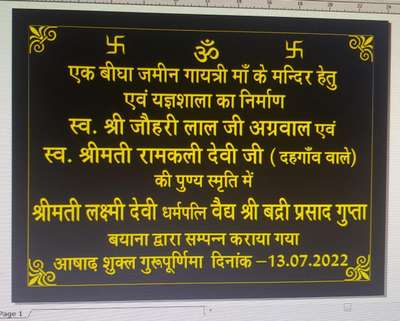 卐 ॐ 卐
एक बीघा जमीन गायत्री माँ के मन्दिर हेतु
एवं यज्ञशाला का निर्माण
स्व. श्री जौहरी लाल जी अग्रवाल एवं
स्व. श्रीमती रामकली देवी जी ( दहगाँव वाले)
की पुण्य स्मृति में
श्रीमती लक्ष्मी देवी धर्मपत्नि वैद्य श्री बद्री प्रसाद गुप्ता
बयाना द्वारा सम्पन्न कराया गया
आषाढ शुक्ल गुरूपूर्णिमा दिनांक –13.07.2022
Page 1